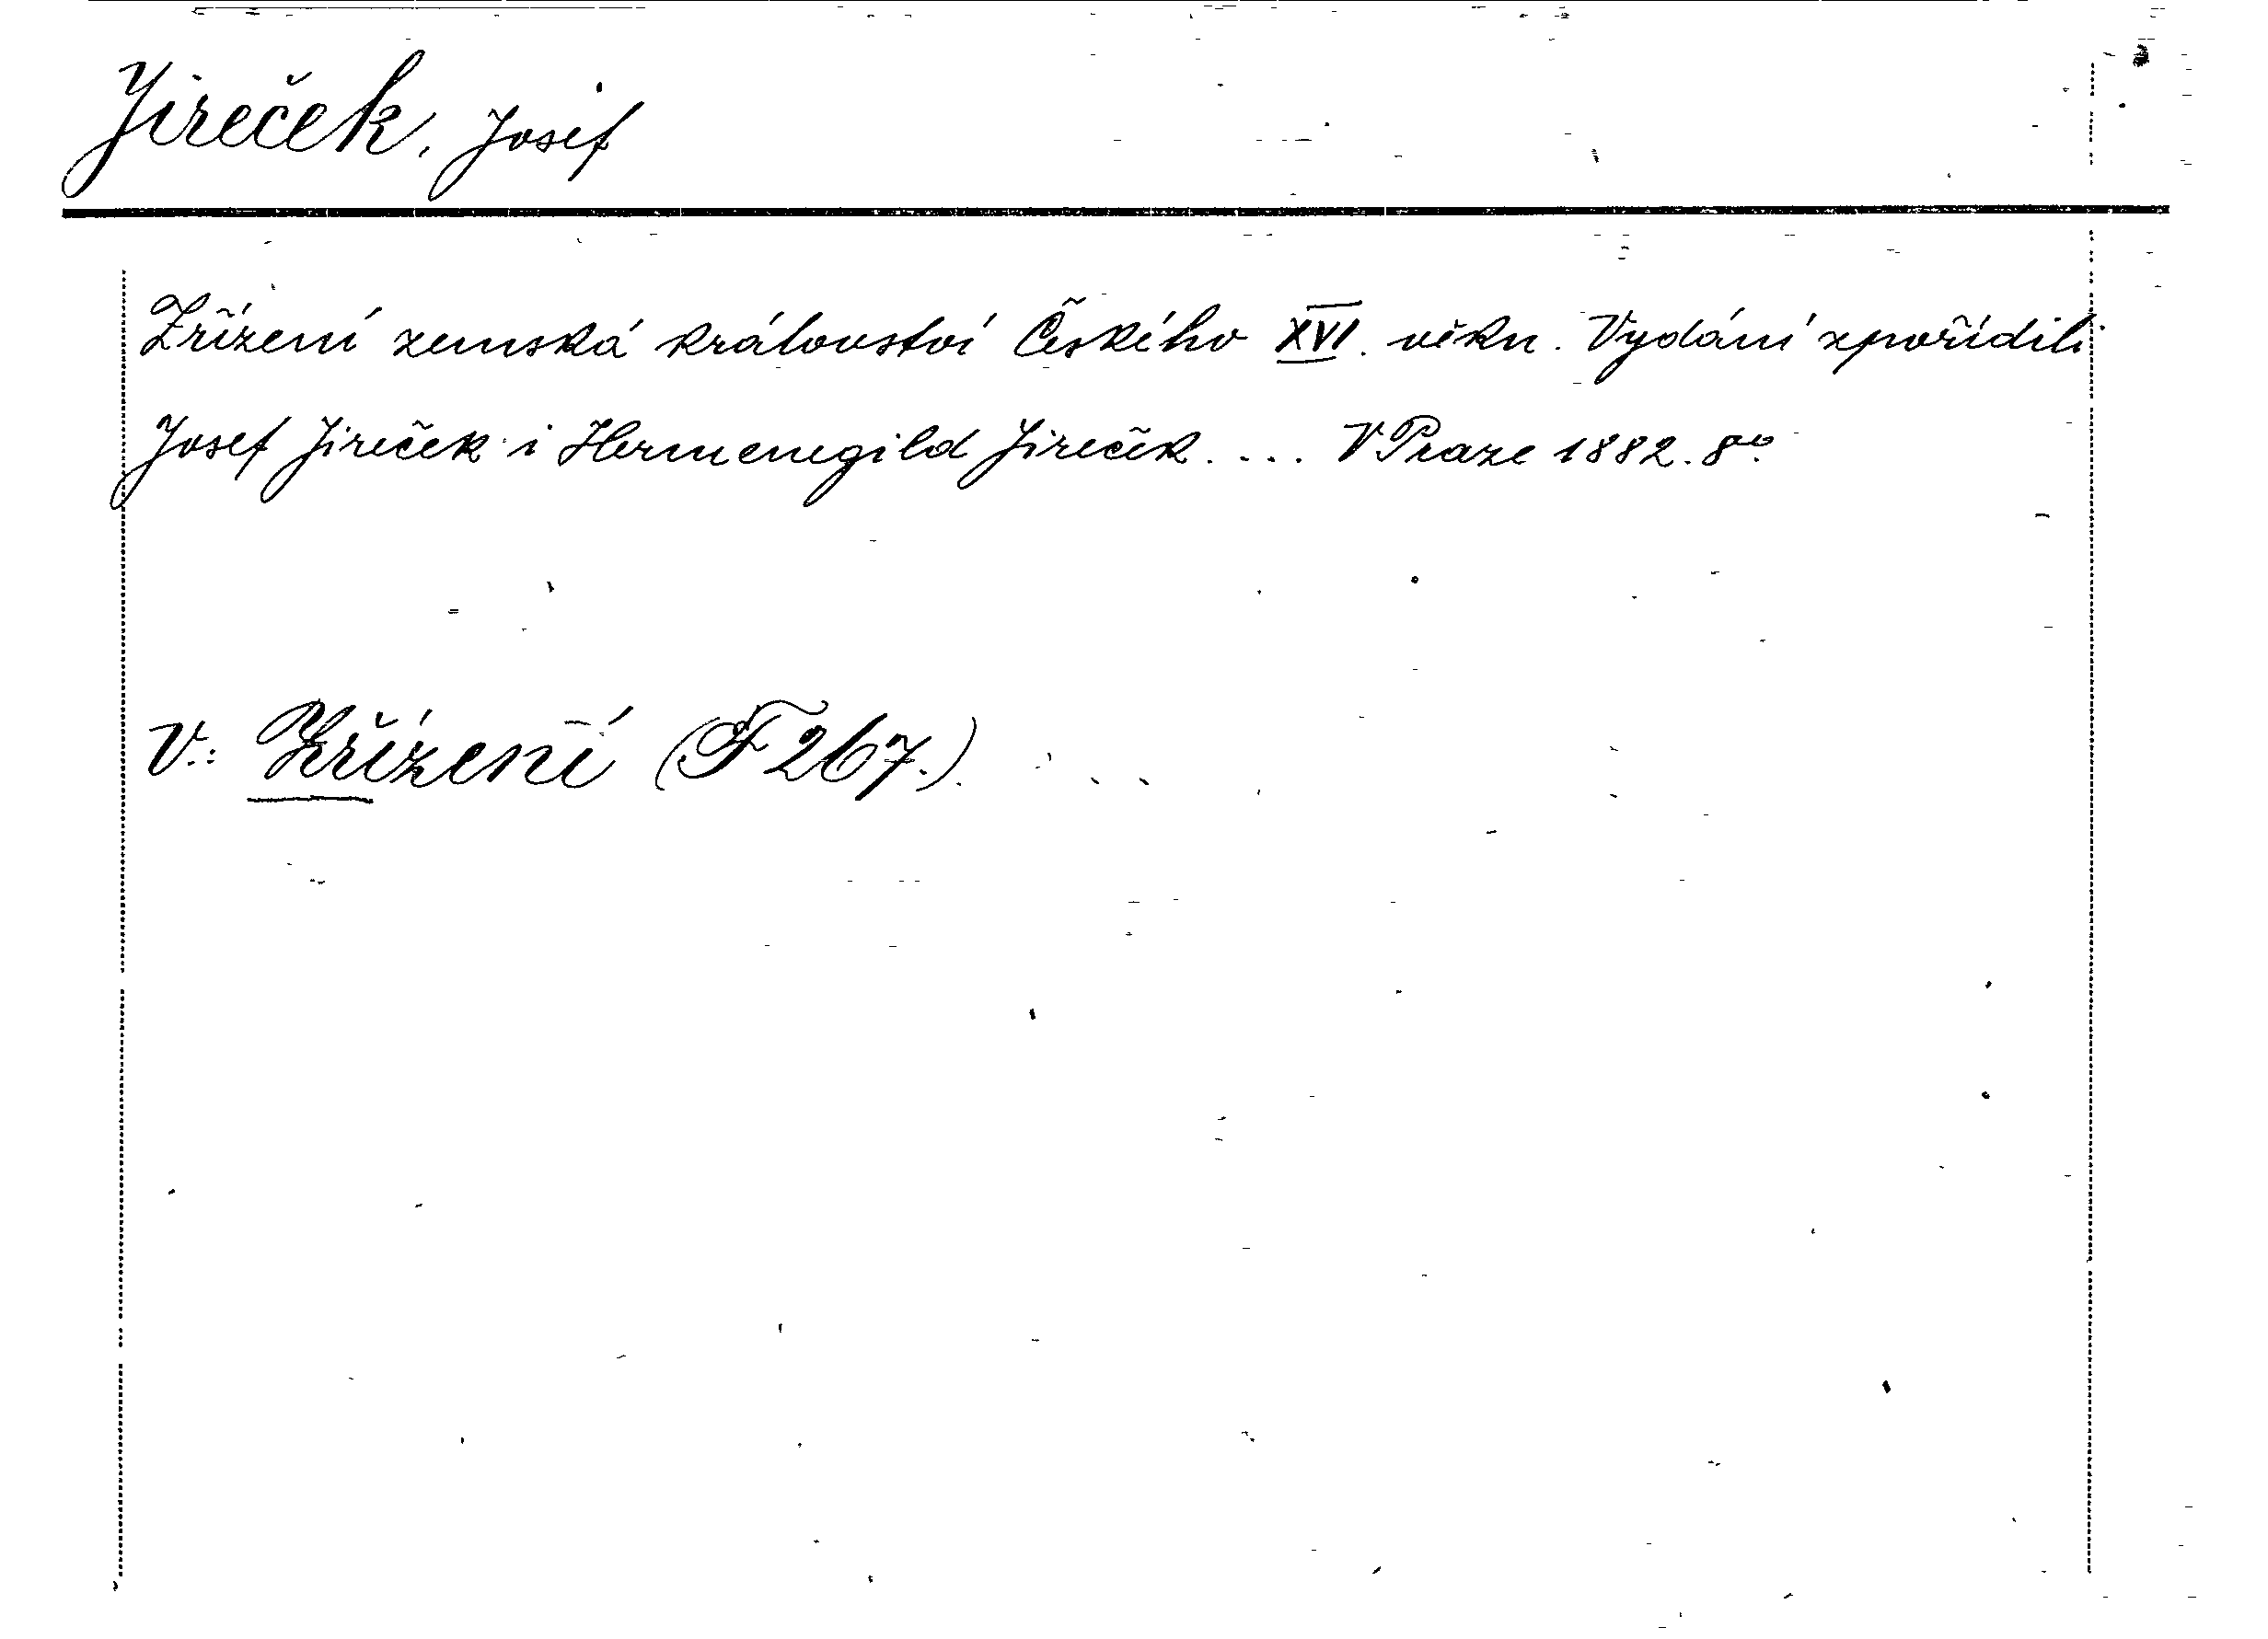 Jireček, Josef
Zřízení zemská království Českého XVI. věku. Vydání zpořídili
Josef Jireček i Hermenegild Jireček.... V Praze 1882. 8vo.
V.: Zřízení (F 267.).